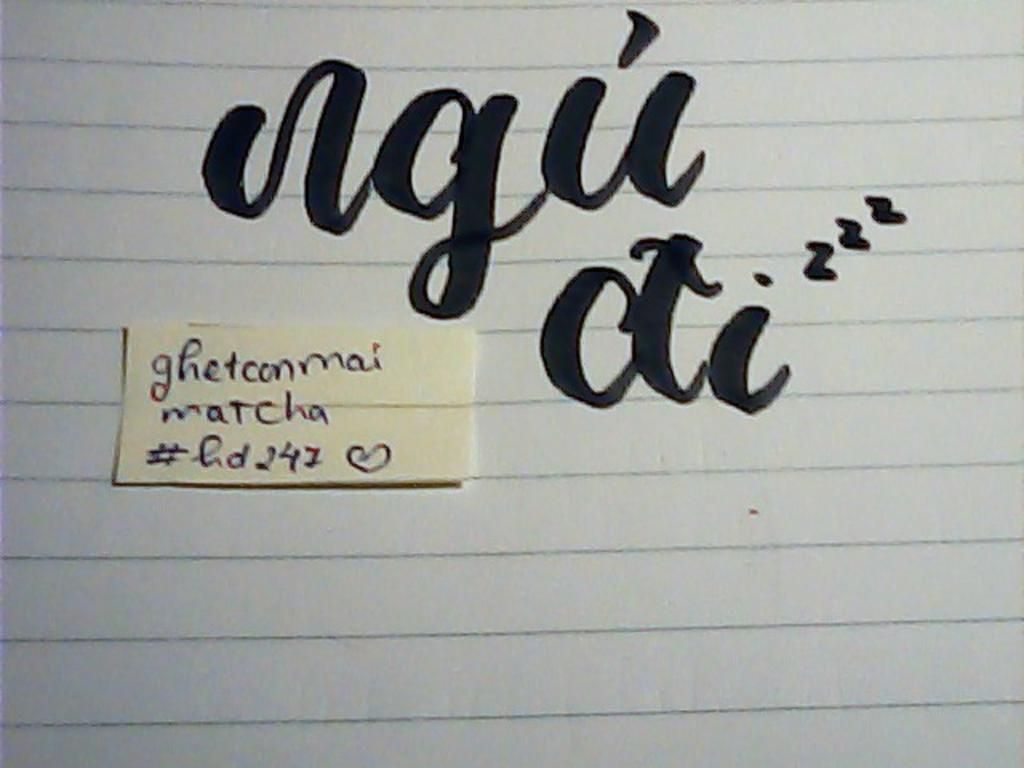 ngủ
đi zzz
ghetconmai
matcha
#hd247 ♡